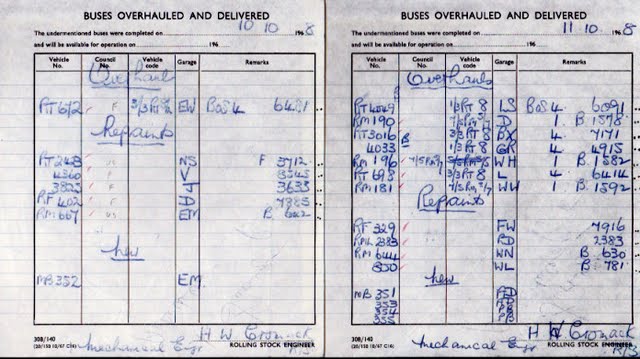 BUSES OVERHAULED AND DELIVERED
The undermentioned buses were completed on 10 10 1968
and will be available for operation on 196
Vehicle No. Council No. Vehicle code Garage Remarks
Overhauls
RT 672 F 3/3 RT 8/2 EW BOS 4 6481
Repaints
RT 248 NS F 3712
4360 V
3825 F J 3633
RF 402 D 7385
RM 667 EM B
New
MB 352 EM
308/140
Mechanical Engr H W Cromack
ROLLING STOCK ENGINEER
BUSES OVERHAULED AND DELIVERED
The undermentioned buses were completed on 11-10- 1968
and will be available for operation on 196
Vehicle No. Council No. Vehicle code Garage Remarks
Overhauls
RT 4549 1/3 RT 8 LS BOS 4 6091
RM 190 D 1 B 1578
RT 3016 3/3 RT 8 BX 4 7171
4033 1/3 RT 8 GR 4 4915
RM 196 WH 1 B 1582
RT 698 3/3 RT 8 L 4 6414
RM 181 WW 1 B 1592
Repaints
RF 329 FW 7916
RML 2383 RD 2383
RM 644 WN B 630
850 WL B 781
New
MB 351 RD
353
354
355
308/140
Mechanical Engr H W Cromack
ROLLING STOCK ENGINEER